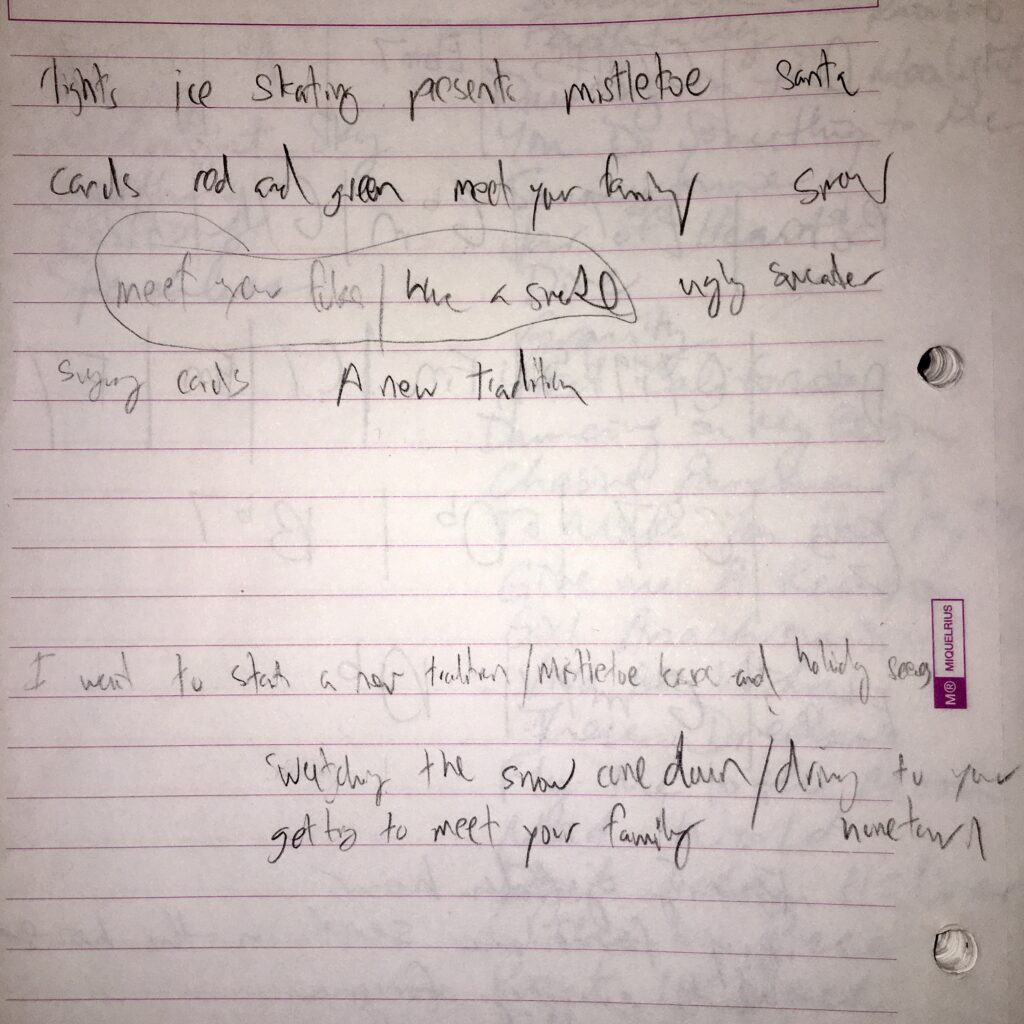 lights ice skating presents mistletoe santa
cards red and green meet your family snow
meet your / like a ugly sweater
signing cards A new tradition
I want to start a new tradition / mistletoe and holiday songs
watching the snow come down / driving to your
getting to meet your family hometown
M® MIQUELRIUS